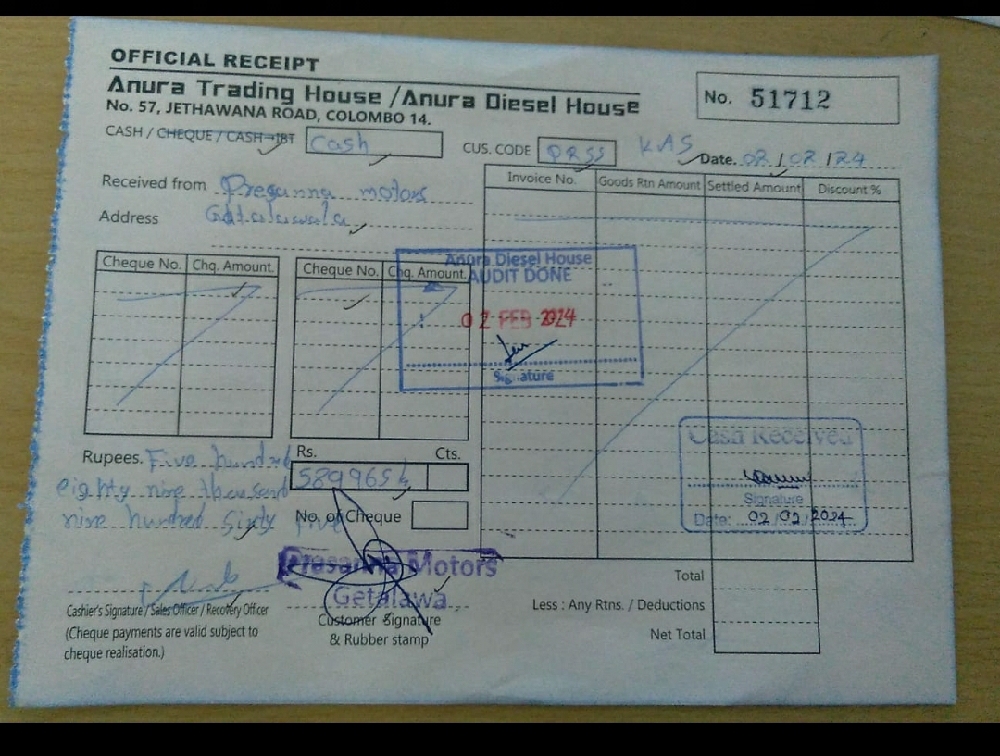 OFFICIAL RECEIPT
Anura Trading House / Anura Diesel House
No. 57, JETHAWANA ROAD, COLOMBO 14.
No. 51712
CASH / CHEQUE / CASH-IBT Cash
CUS. CODE PRSS KAS Date. 02/02/24
Received from Presanna motors
Address
Invoice No. Goods Rtn Amount Settled Amount Discount %
Cheque No. Chq. Amount. Cheque No. Chq. Amount.
Anura Diesel House
AUDIT DONE
02 FEB 2024
Signature
Cash Received
Signature
Date: 02/02/2024
Rupees. Five hundred
eighty nine thousand
nine hundred sixty five
Rs. Cts.
589965
No. of Cheque
Prasanna Motors
Getalawa
Cashier's Signature / Sales Officer / Recovery Officer
(Cheque payments are valid subject to
cheque realisation.)
Customer Signature
& Rubber stamp
Total
Less : Any Rtns. / Deductions
Net Total